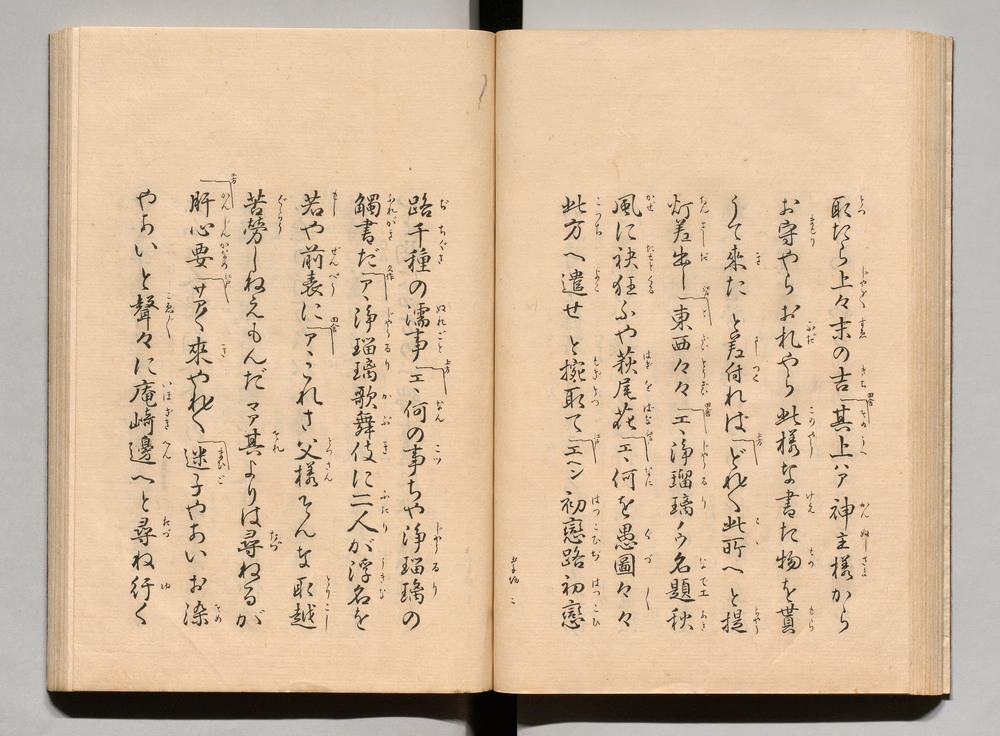 取たら上々末の吉其上ハア神主様から
お守やらお札やら此様な書た物を貰
うて来た と差付ればどれ〳〵此所へ と提
灯差出し東西々々エヽ浄瑠璃名題秋
風に袂狂ふや萩尾花エヽ何を愚圖々々
此方へ遣せ と捥取てエヘン 初戀路初戀
路千種の濡事エヽ何の事ちや浄瑠璃の
觸書だアヽ浄瑠璃歌舞伎に二人が浮名を
若や前表にアヽこれさ父様そんな取越
苦勞しねえもんだマア其よりは尋ねるが
肝心要サア〳〵來やれ〳〵迷子やあい お染
やあいと聲々に庵崎邊へと尋ね行く